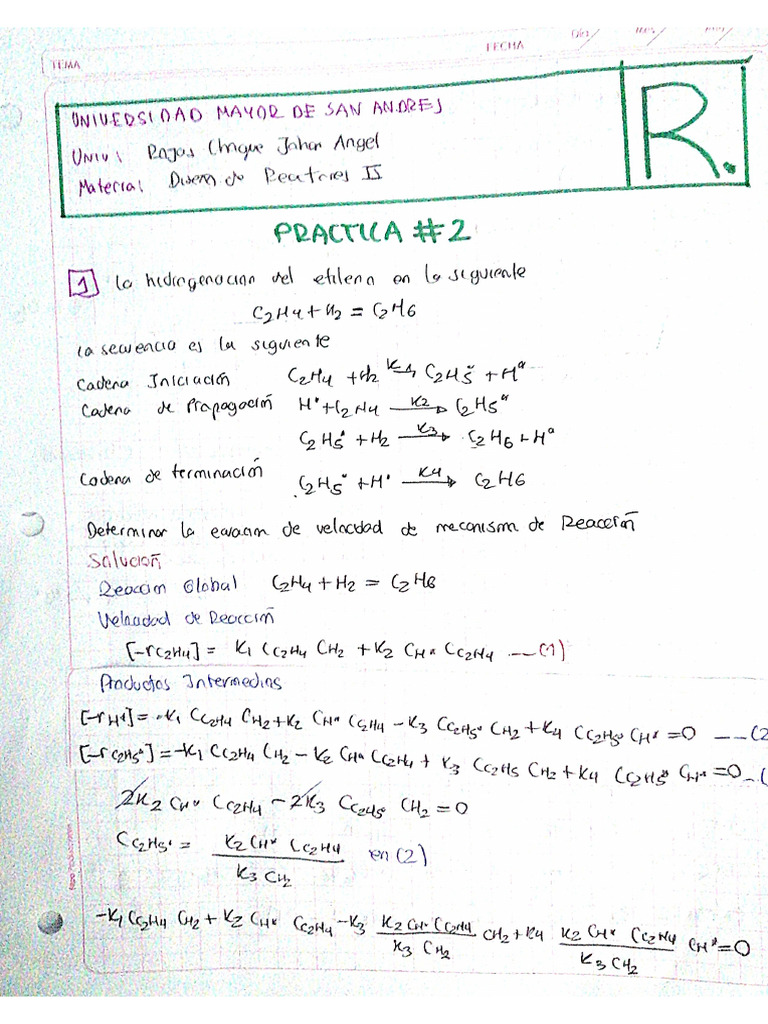 TEMA
FECHA
UNIVERSIDAD MAYOR DE SAN ANDRES
Univ: Rojas Choque Johan Angel
Materia: Diseño de Reactores II
R.
PRACTICA #2
1 La hidrogenación del etileno en la siguiente
C2H4 + H2 = C2H6
La secuencia es la siguiente
Cadena Iniciación C2H4 + H2 K1→ C2H5* + H*
Cadena de Propagación H* + C2H4 K2→ C2H5*
C2H5* + H2 K3→ C2H6 + H*
Cadena de terminación C2H5* + H* K4→ C2H6
Determinar la ecuación de velocidad de mecanismo de Reacción
Solución
Reacción Global C2H4 + H2 = C2H6
Velocidad de Reacción
[-rC2H4] = K1 CC2H4 CH2 + K2 CH* CC2H4 --- (1)
Productos Intermedios
[-rH*] = -K1 CC2H4 CH2 + K2 CH* CC2H4 - K3 CC2H5* CH2 + K4 CC2H5* CH* = 0 --- (2
[-rC2H5*] = -K1 CC2H4 CH2 - K2 CH* CC2H4 + K3 CC2H5 CH2 + K4 CC2H5* CH* = 0 -- (
2K2 CH* CC2H4 - 2K3 CC2H5* CH2 = 0
CC2H5* = K2 CH* CC2H4 / K3 CH2 en (2)
-K1 CC2H4 CH2 + K2 CH* CC2H4 - K3 K2 CH* CC2H4 / K3 CH2 CH2 + K4 K2 CH* CC2H4 / K3 CH2 CH* = 0